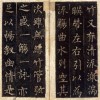 竹又有清流激湍
暎帶左右引以為流
觴曲水列坐其
次雖無絲竹管弦
之盛一觴一詠亦足
以暢敘幽情是